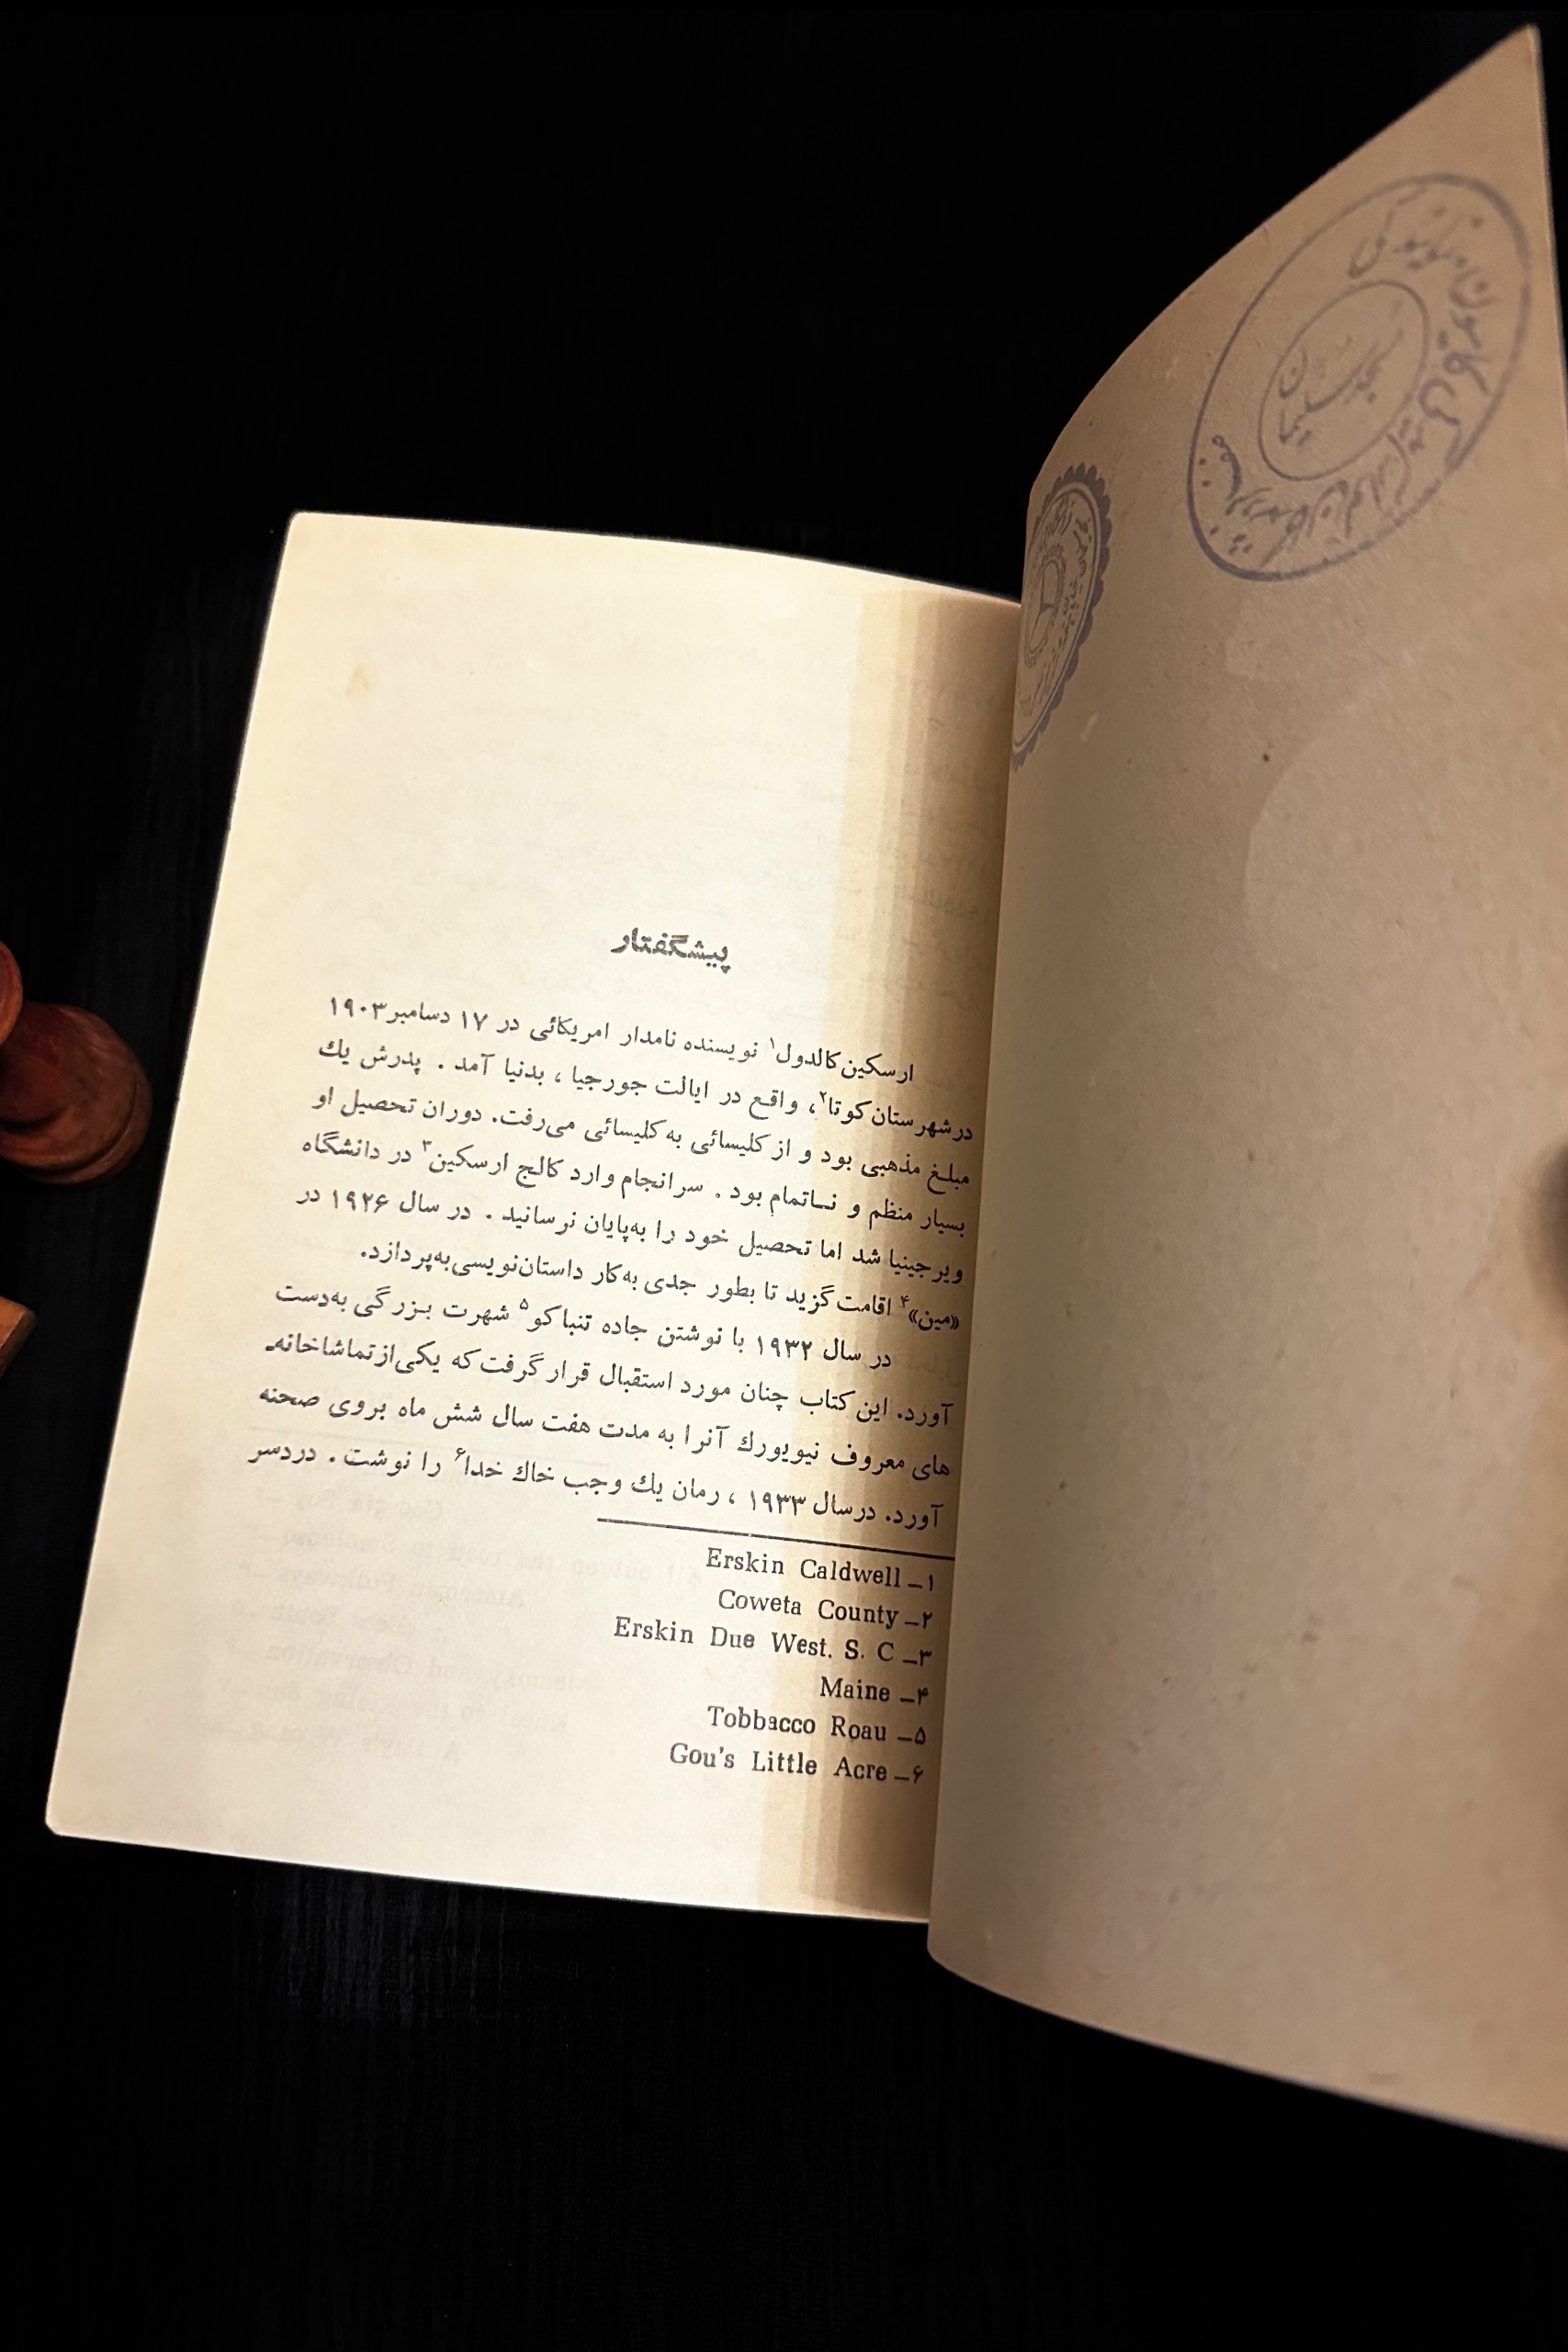 پیشگفتار
ارسکین کالدول۱ نویسنده نامدار امریکائی در ۱۷ دسامبر ۱۹۰۳
در شهرستان کوتا۲، واقع در ایالت جورجیا ، بدنیا آمد . پدرش یك
مبلغ مذهبی بود و از کلیسائی به کلیسائی می‌رفت. دوران تحصیل او
بسیار منظم و نـاتمام بود . سرانجام وارد کالج ارسکین۳ در دانشگاه
ویرجینیا شد اما تحصیل خود را به‌پایان نرسانید . در سال ۱۹۲۶ در
«مین»۴ اقامت گزید تا بطور جدی به‌کار داستان‌نویسی به‌پردازد.
در سال ۱۹۳۲ با نوشتن جاده تنباکو۵ شهرت بزرگی به‌دست
آورد. این کتاب چنان مورد استقبال قرار گرفت که یکی از تماشاخانه‌ـ
های معروف نیویورك آنرا به مدت هفت سال شش ماه بروی صحنه
آورد. درسال ۱۹۳۳ ، رمان یك وجب خاك خدا۶ را نوشت . دردسر
۱ـ Erskin Caldwell
۲ـ Coweta County
۳ـ Erskin Due West. S. C
۴ـ Maine
۵ـ Tobbacco Roau
۶ـ Gou's Little Acre
مسجد سلیمان